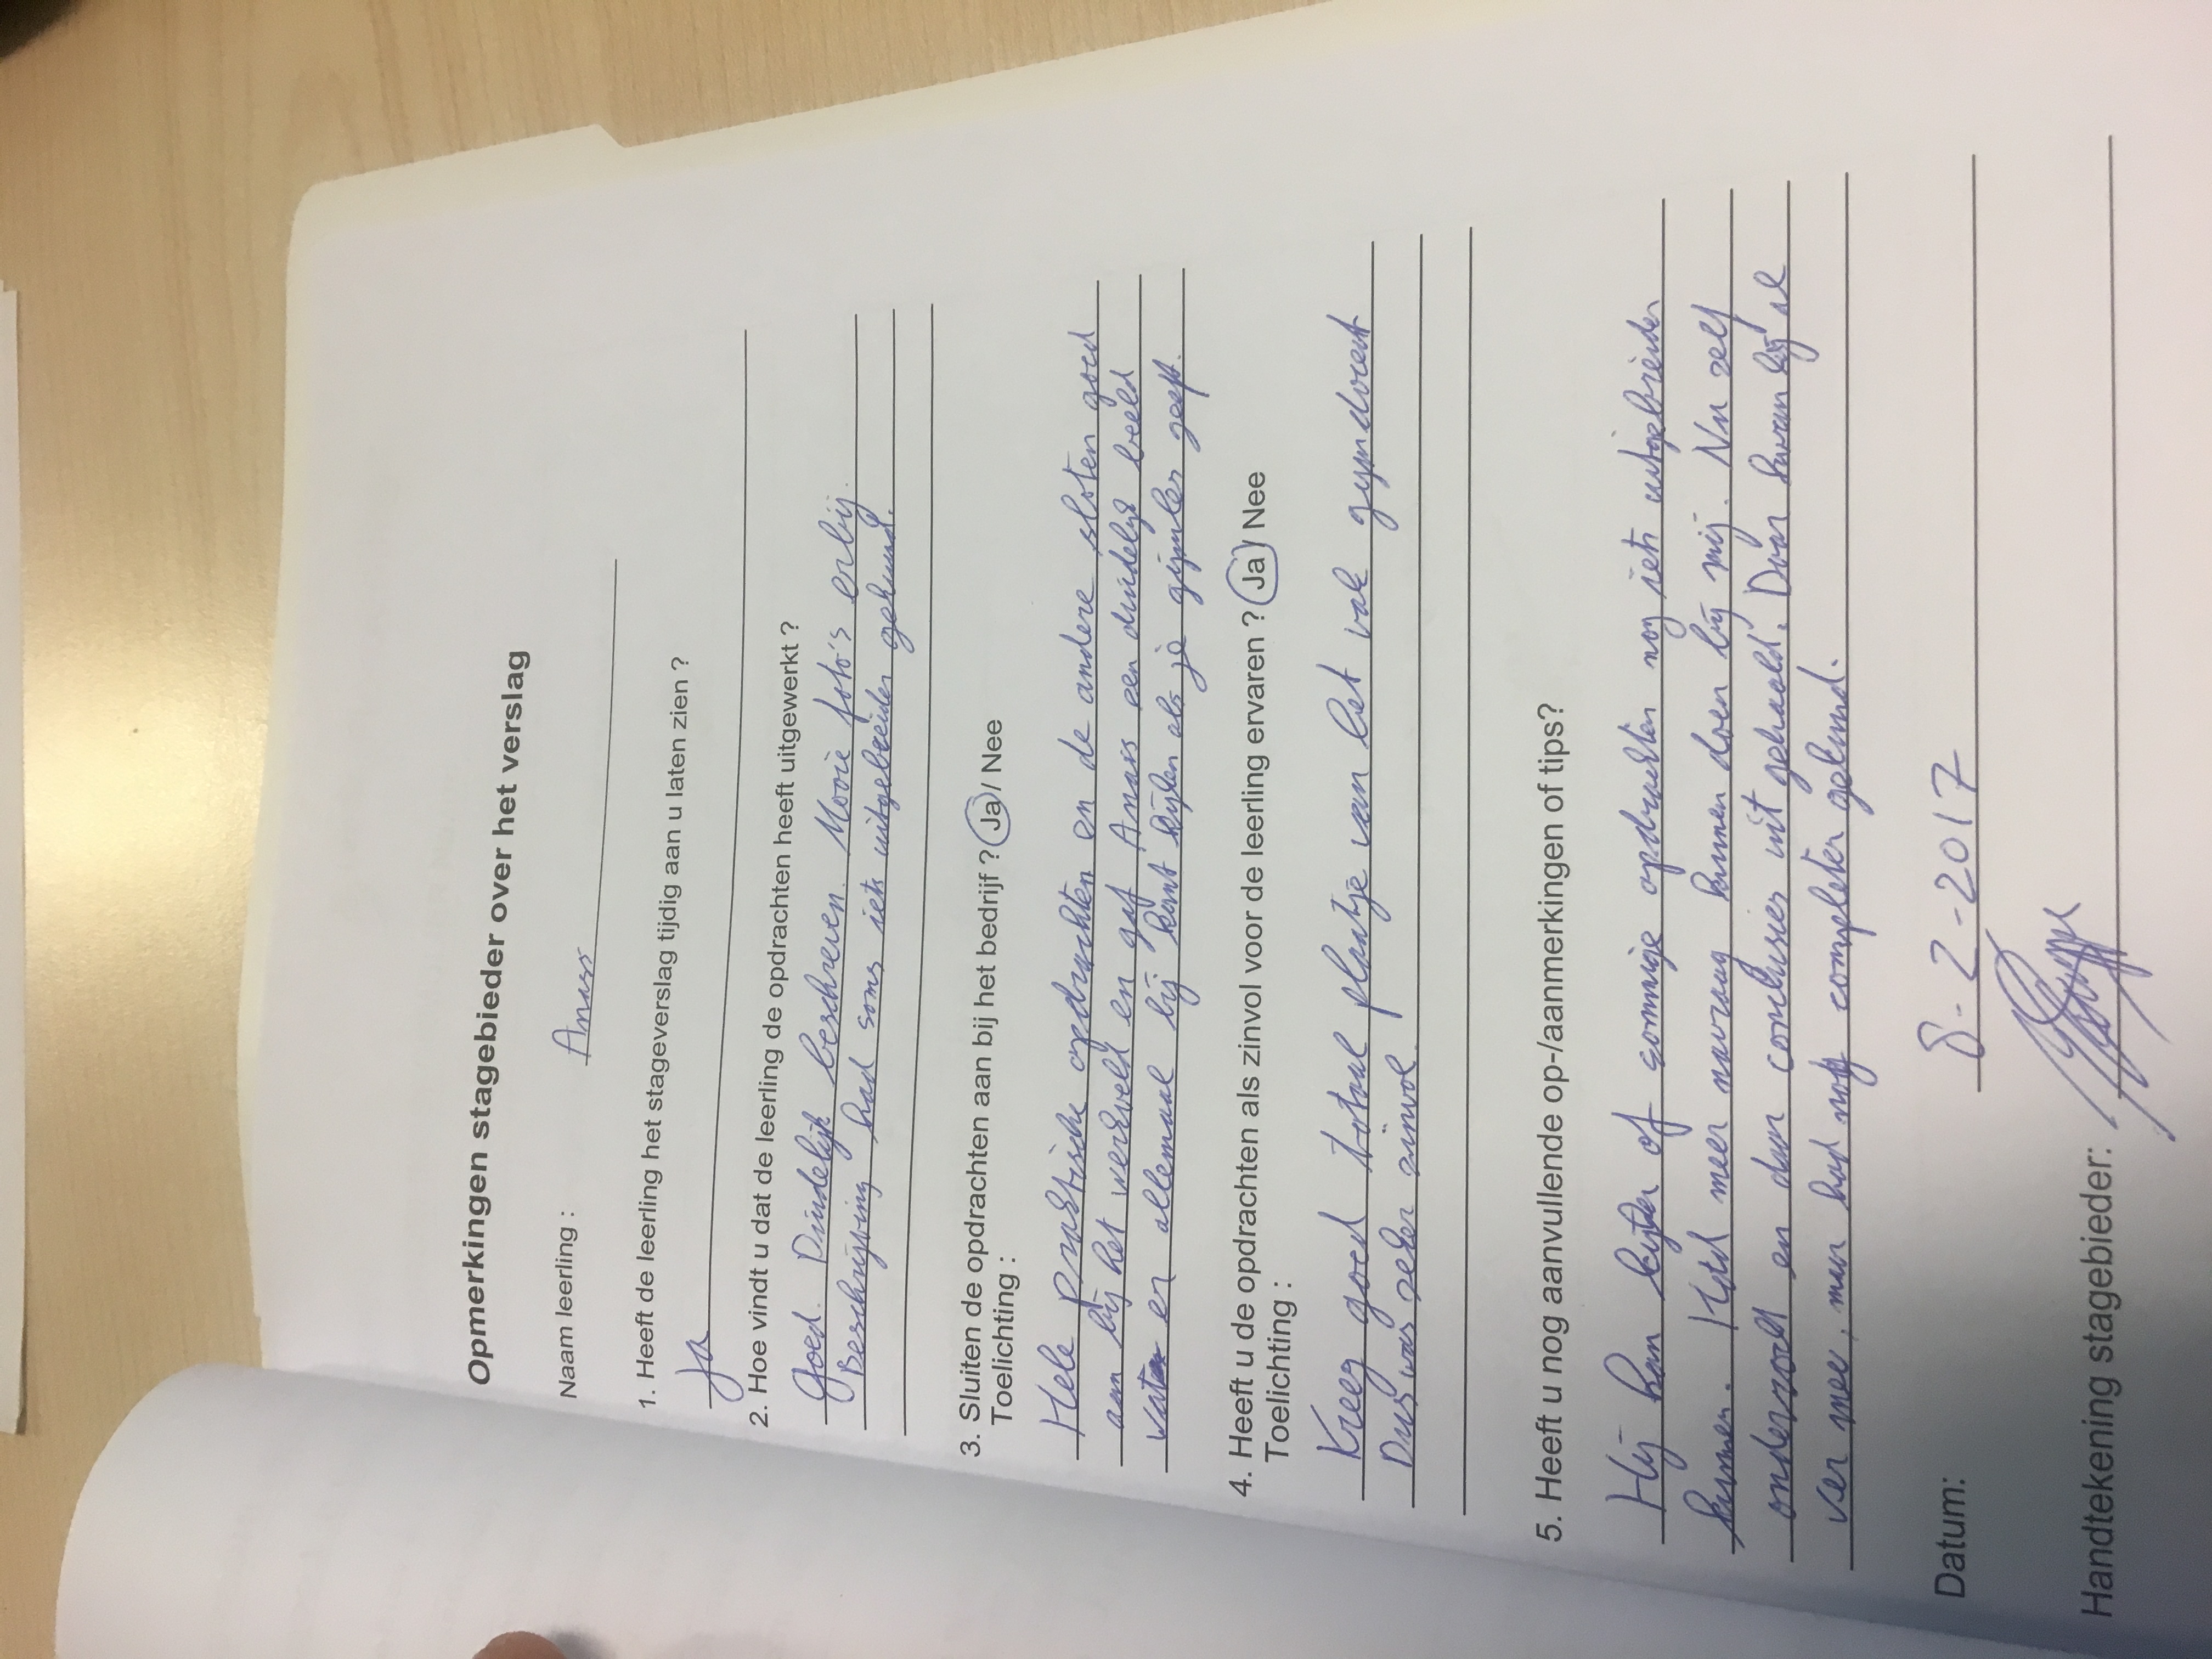 Opmerkingen stagebieder over het verslag
Naam leerling : Anass
1. Heeft de leerling het stageverslag tijdig aan u laten zien ?
Ja
2. Hoe vindt u dat de leerling de opdrachten heeft uitgewerkt ?
Goed. Duidelijk beschreven. Mooie foto's erbij.
Beschrijving had soms iets uitgebreider gekund.
3. Sluiten de opdrachten aan bij het bedrijf ? Ja / Nee
Toelichting :
Hele praktische opdrachten en de andere sloten goed
aan bij het werkveld en gaf Anass een duidelijk beeld
wat er allemaal bij komt kijken als je gymles geeft.
4. Heeft u de opdrachten als zinvol voor de leerling ervaren ? Ja / Nee
Toelichting :
Kreeg goed totaal plaatje van het vak gymdocent
Dus was zeker zinvol.
5. Heeft u nog aanvullende op-/aanmerkingen of tips?
Hij kan bij of sommige opdrachten nog iets uitgebreider
kunnen. Had meer navraag kunnen doen bij mij. Nu zelf
onderzocht en dan conclusies uit gehaald. Daar kwam hij al
ver mee, maar had nog completer gekund.
Datum: 8-2-2017
Handtekening stagebieder: